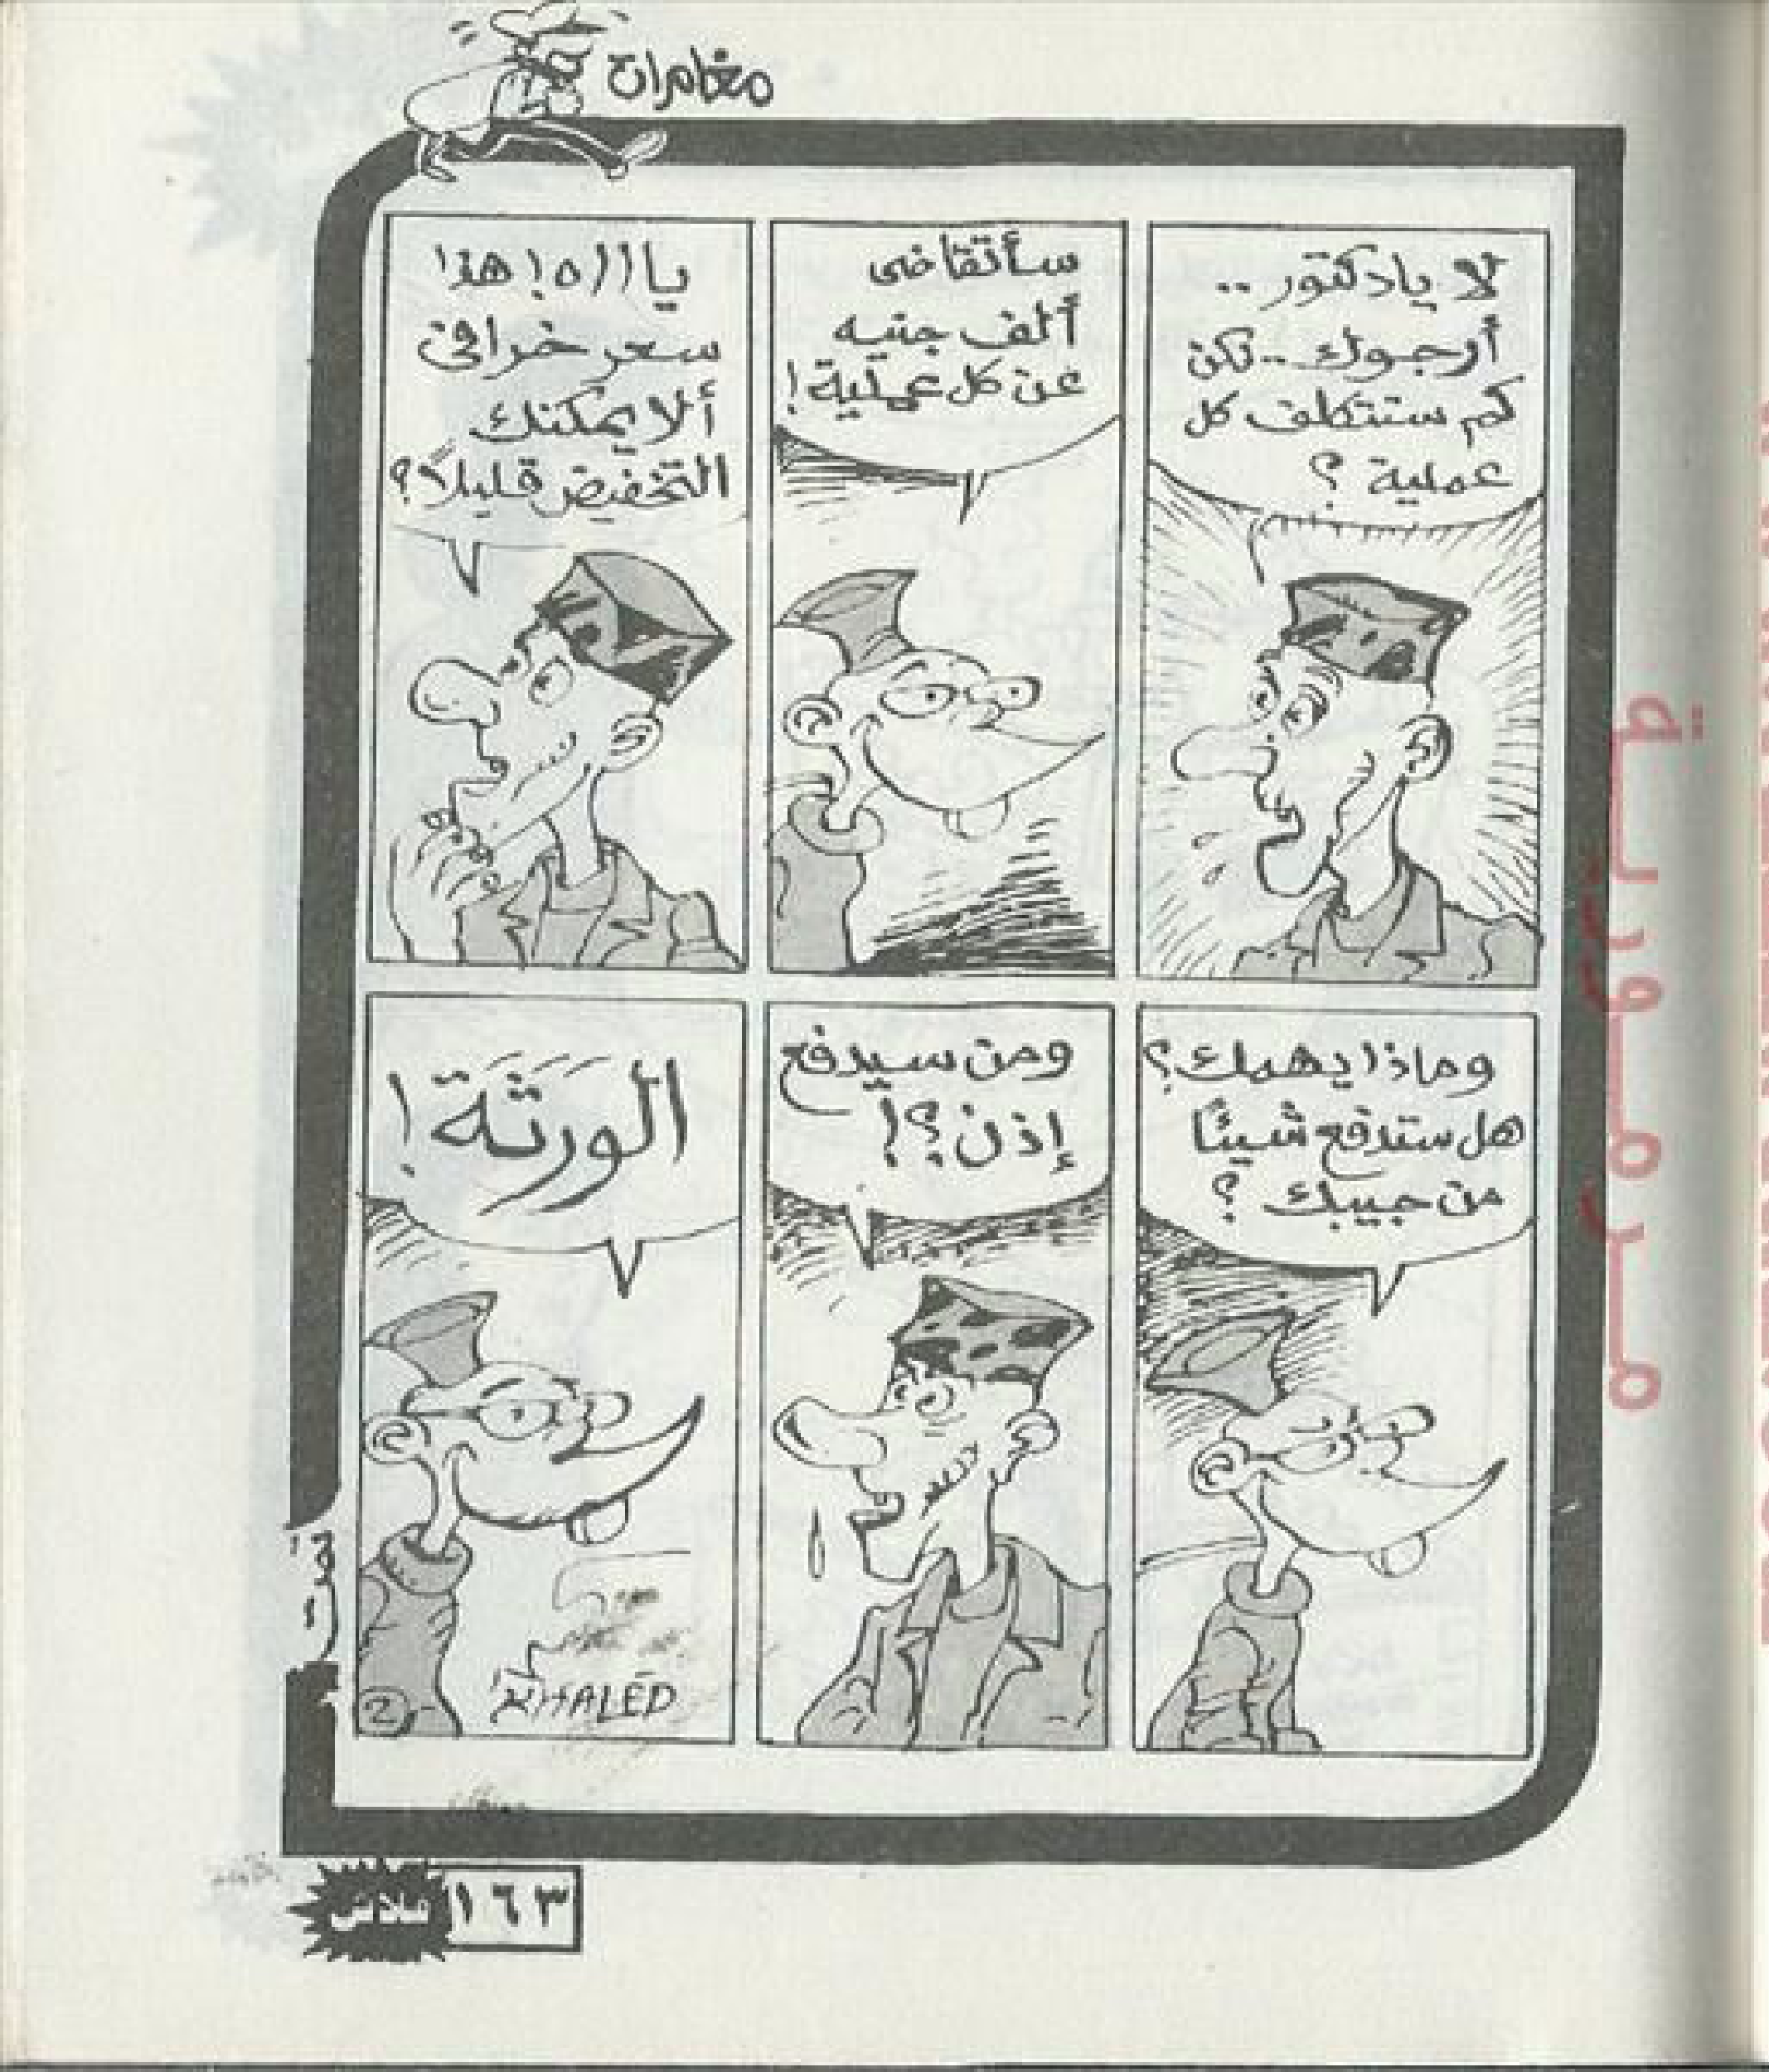 مغامرات
لا يا دكتور ..
أرجوك .. لكن
كم ستتكلف كل
عملية ؟
سأتقاضى
ألف جنيه
عن كل عملية !
يا ااه ! هذا
سعر خرافى
ألا يمكنك
التخفيض قليلاً ؟
وماذا يهمك ؟
هل ستدفع شيئًا
من جيبك ؟
ومن سيدفع
إذن ؟ !
الورثة !
KHALED
2
تمت
١٦٣
فلاش
مرمورية